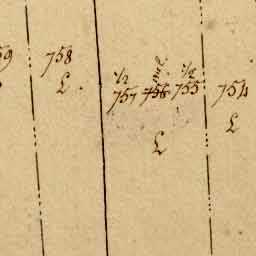 59
758
£
1/2
757 756 755
1/2
£
754
£